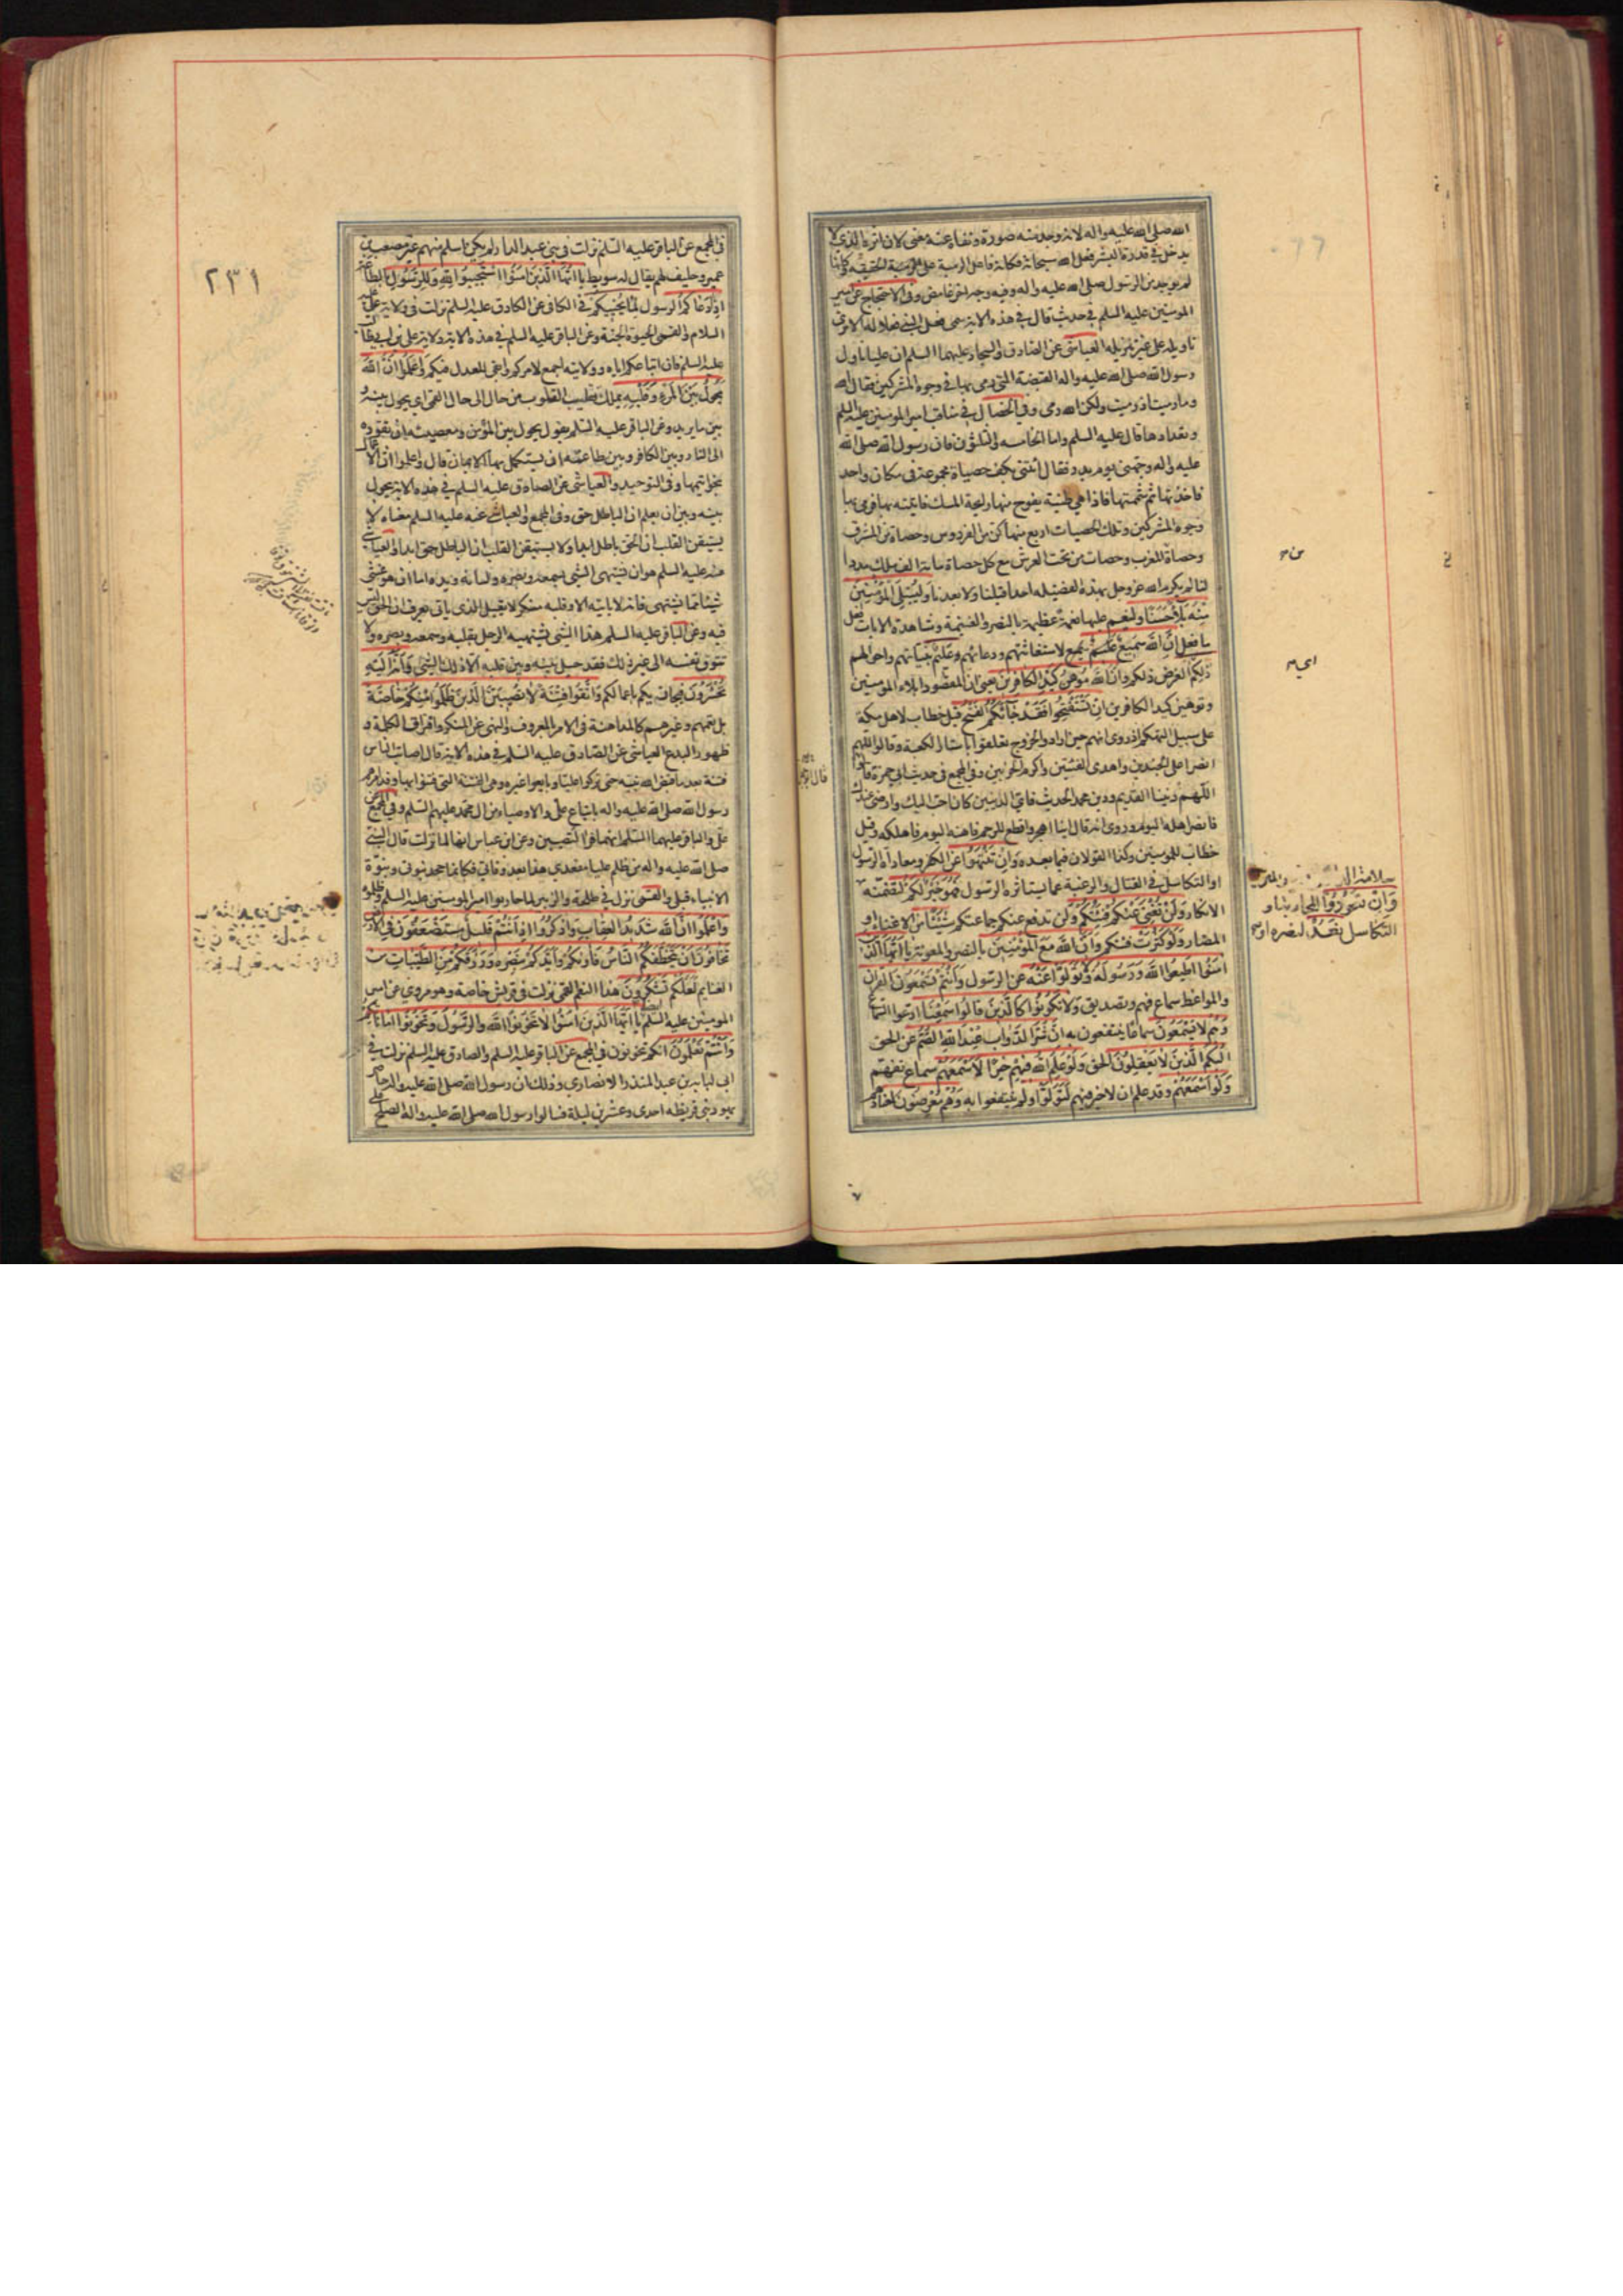 الله صلى الله عليه واله لانه وجد منه صورة ونفاه عنه معنى لان اثره الذي لا
يدخل في قدرة البشر فعل الله سبحانه فكانه فاعل الرمية على الحقيقة وكانها
لم يوجد من الرسول صلى الله عليه واله وفيه وجه اخر غامض وفي الاحتجاج عن امير
المومنين عليه السلم في حديث قال في هذه الاية سمى فعل النبي فعلا له الا ترى
تاويله على غير تنزيله العياشي عن الصادق والسجاد عليهما السلم ان عليا ناول
رسول الله صلى الله عليه واله القبضة التي رمى بها في وجوه المشركين فقال الله
وما رميت اذ رميت ولكن الله رمى وفي الخصال في مناقب امير المومنين عليه السلم
وتعدادها قال عليه السلم واما الخامسه والثلثون فان رسول الله صلى الله
عليه واله وجهني يوم بدر فقال ائتني بكف حصياة مجموعة في مكان واحد
فاخذتها ثم شممتها فاذا هي طيبة يفوح منها رايحة المسك فاتيته بها فرمى بها
وجوه المشركين وتلك الحصيات اربع منها كن من الفردوس وحصاة من المشرق
وحصاة المغرب وحصات من تحت العرش مع كل حصاة مائة الف ملك مددا
لنا لم يكرم الله عز وجل بهذه الفضيله احدا قبلنا ولا بعدنا وَلِيُبْلِيَ الْمُؤْمِنِينَ
مِنْهُ بَلَاءً حَسَنًا ولينعم عليهم نعمة عظيمة بالنصر والغنيمة ومشاهدة الايات فعل
ما فعل اِنَّ اللهَ سَمِيعٌ عَلِيمٌ سميع لاستغاثتهم ودعائهم وعليم بنياتهم واحوالهم
ذلِكُمْ الغرض ذلكم وَاَنَّ اللهَ مُوهِنُ كَيْدِ الْكَافِرِينَ يعني ان المقصود ابلاء المومنين
وتوهين كيد الكافرين اِنْ تَسْتَفْتِحُوا فَقَدْ جَائَكُمُ الْفَتْحُ قيل خطاب لاهل مكة
على سبيل التهكم اذ روى انهم حين ارادوا الخروج تعلقوا باستار الكعبة وقالوا اللهم
انصر اعلى الجندين واهدى الفئتين واكرم الحزبين وفي المجمع في حديث ابي حمزة قال
اللهم ربنا القديم ودين محمد الحديث فاي الدينين كان احب اليك وارضى عندك
فانصر اهله اليوم وروى انه قال اينا اهجر واقطع للرحم فاهنه اليوم فاهلكه وقيل
خطاب للمومنين وكذا القولان فيما بعده وَاِنْ تَنْتَهُوا عن الكفر ومعاداة الرسول
او التكاسل في القتال والرغبة عما يستاثره الرسول فَهُوَ خَيْرٌ لَكُمْ لتضمنه
الانكار وَلَنْ تُغْنِيَ عَنْكُمْ فِئَتُكُمْ ولن تدفع عنكم جماعتكم شَيْئًا من الاغناء او
المضار وَلَوْ كَثُرَتْ فئتكم وَاَنَّ اللهَ مَعَ الْمُؤْمِنِينَ بالنصر والمعونة يا اَيُّهَا الَّذِينَ
امَنُوا اَطِيعُوا اللهَ وَرَسُولَهُ وَلَا تَوَلَّوْا عَنْهُ عن الرسول وَاَنْتُمْ تَسْمَعُونَ القران
والمواعظ سماع فهم وتصديق وَلَا تَكُونُوا كَالَّذِينَ قَالُوا سَمِعْنَا ادعوا السماع
وَهُمْ لَا يَسْمَعُونَ سماعا ينتفعون به اِنَّ شَرَّ الدَّوَابِّ عِنْدَ اللهِ الصُّمُّ عن الحق
الْبُكْمُ الَّذِينَ لَا يَعْقِلُونَ الحق وَلَوْ عَلِمَ اللهُ فِيهِمْ خَيْرًا لَاَسْمَعَهُمْ سماع تفهم
وَلَوْ اَسْمَعَهُمْ وقد علم ان لا خير فيهم لَتَوَلَّوْا ولم ينتفعوا به وَهُمْ مُعْرِضُونَ لعنادهم
وَاِنْ تَعُودُوا لمحاربته او
التكاسل نَعُدْ لنصره او
٢٣١
في المجمع عن الباقر عليه السلم نزلت في بني عبد الدار لم يكن اسلم منهم غير مصعب بن
عمير وحليف لهم يقال له سويط يا اَيُّهَا الَّذِينَ امَنُوا اسْتَجِيبُوا لِلّهِ وَلِلرَّسُولِ بالطاعة
اِذَا دَعَاكُمْ الرسول لِمَا يُحْيِيكُمْ في الكافي عن الصادق عليه السلم نزلت في ولاية علي عليه
السلام والقمي الحيوة الجنة وعن الباقر عليه السلم في هذه الاية ولاية علي بن ابي طالب
عليه السلم فان اتباعكم اياه وولايته اجمع لامركم وابقى للعدل فيكم وَاعْلَمُوا اَنَّ اللهَ
يَحُولُ بَيْنَ الْمَرْءِ وَقَلْبِهِ يملك تقليب القلوب من حال الى حال القمي اي يحول بينه و
بين ما يريد وعن الباقر عليه السلم يقول يحول بين المؤمن ومعصيته ان تقوده
الى النار وبين الكافر وبين طاعته ان يستكمل بها الايمان قال واعلموا ان الاعمال
بخواتيمها وفي التوحيد والعياشي عن الصادق عليه السلم في هذه الاية يحول
بينه وبين ان يعلم ان الباطل حق وفي المجمع والعياشي عنه عليه السلم معناه لا
يستيقن القلب ان الحق باطل ابدا ولا يستيقن القلب ان الباطل حق ابدا والعياشي
عنه عليه السلم هو ان يشتهي الشئ بسمعه وبصره ولسانه ويده اما ان هو غشي
شيئا مما يشتهي فانه لا ياتيه الا وقلبه منكر لا يقبل الذي ياتي يعرف ان الحق ليس
فيه وعن الباقر عليه السلم هذا الشئ يشتهيه الرجل بقلبه وسمعه وبصره ولا
تتوق نفسه الى غير ذلك فقد حيل بينه وبين قلبه الا ذلك الشئ وَاَنَّهُ اِلَيْهِ
تُحْشَرُونَ فيجازيكم باعمالكم وَاتَّقُوا فِتْنَةً لَا تُصِيبَنَّ الَّذِينَ ظَلَمُوا مِنْكُمْ خَاصَّةً
بل يعمهم وغيرهم كالمداهنة في الامر بالمعروف والنهي عن المنكر وافتراق الكلمة و
ظهور البدع العياشي عن الصادق عليه السلم في هذه الاية قال اصابت الناس
فتنة بعد ما قبض الله نبيه حتى تركوا عليا وبايعوا غيره وهي الفتنة التي فتنوا بها وقد امرهم
رسول الله صلى الله عليه واله باتباع علي والاوصياء من ال محمد عليهم السلم وفي المجمع عن
علي والباقر عليهما السلم انهما قرءا لتصيبن وعن ابن عباس انها لما نزلت قال النبي
صلى الله عليه واله من ظلم عليا مقعدي هذا بعد وفاتي فكانما جحد نبوتي ونبوة
الانبياء قبلي والقمي نزل في طلحة والزبير لما حاربوا امير المومنين عليه السلم وظلموه
وَاعْلَمُوا اَنَّ اللهَ شَدِيدُ الْعِقَابِ وَاذْكُرُوا اِذْ اَنْتُمْ قَلِيلٌ مُسْتَضْعَفُونَ فِي الْاَرْضِ
تَخَافُونَ اَنْ يَتَخَطَّفَكُمُ النَّاسُ فَاوَيكُمْ وَاَيَّدَكُمْ بِنَصْرِهِ وَرَزَقَكُمْ مِنَ الطَّيِّبَاتِ من
الغنايم لَعَلَّكُمْ تَشْكُرُونَ هذه النعم القمي نزلت في قريش خاصة وهو مروي عن امير
المومنين عليه السلم يا اَيُّهَا الَّذِينَ امَنُوا لَا تَخُونُوا اللهَ وَالرَّسُولَ وَتَخُونُوا اَمَانَاتِكُمْ
وَاَنْتُمْ تَعْلَمُونَ انكم تخونون في المجمع عن الباقر عليه السلم والصادق عليه السلم نزلت في
ابي لبابة بن عبد المنذر الانصاري وذلك ان رسول الله صلى الله عليه واله حاصر
يهود بني قريظه احدى وعشرين ليلة فسالوا رسول الله صلى الله عليه واله الصلح على